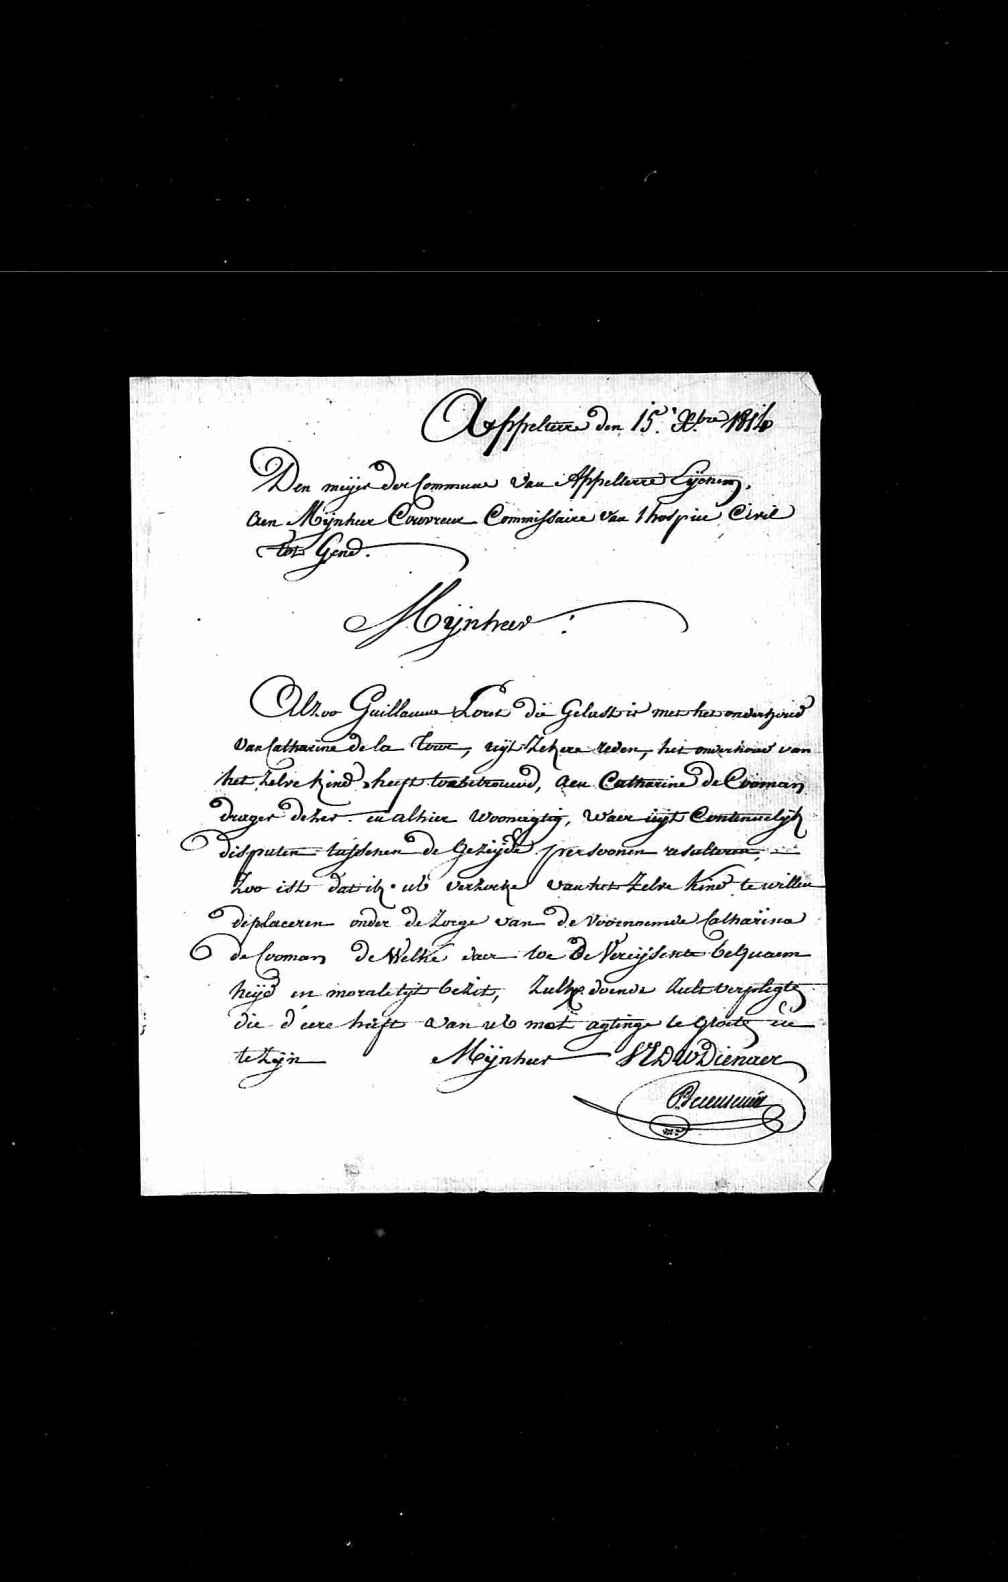 Appelterre den 15. Xbre 1814
Den meijer der Commune van Appelterre Eijchem,
aen Mijnheer Couvreur Commissaire van thospice Civil
tot Gend.
Mijnheer :
Alzoo Guillaume Loret die Gelast is met het onderhoud
van Catharine de la Tour, uijt zekere reden, het onderhoud van
het zelve kind heeft toebetrouwd, aen Catharine de Cooman
drager deser en alhier woonagtig, waer uijt Continuelijk
disputen tusschen de Gezeijde persoonen resulteren,
Zoo ist dat ik ul verzoeke van het zelve kind te willen
deplaceren onder de zorge van de voornoemde Catharina
de Cooman de Welke daer toe de Vereijschte bequaem
heijd en moraletijt bezit, zulkx doende zult verplegten
die d'eere heeft van ul met agtinge te Groeten en
te zijn Mijnheer UEDW Dienaer